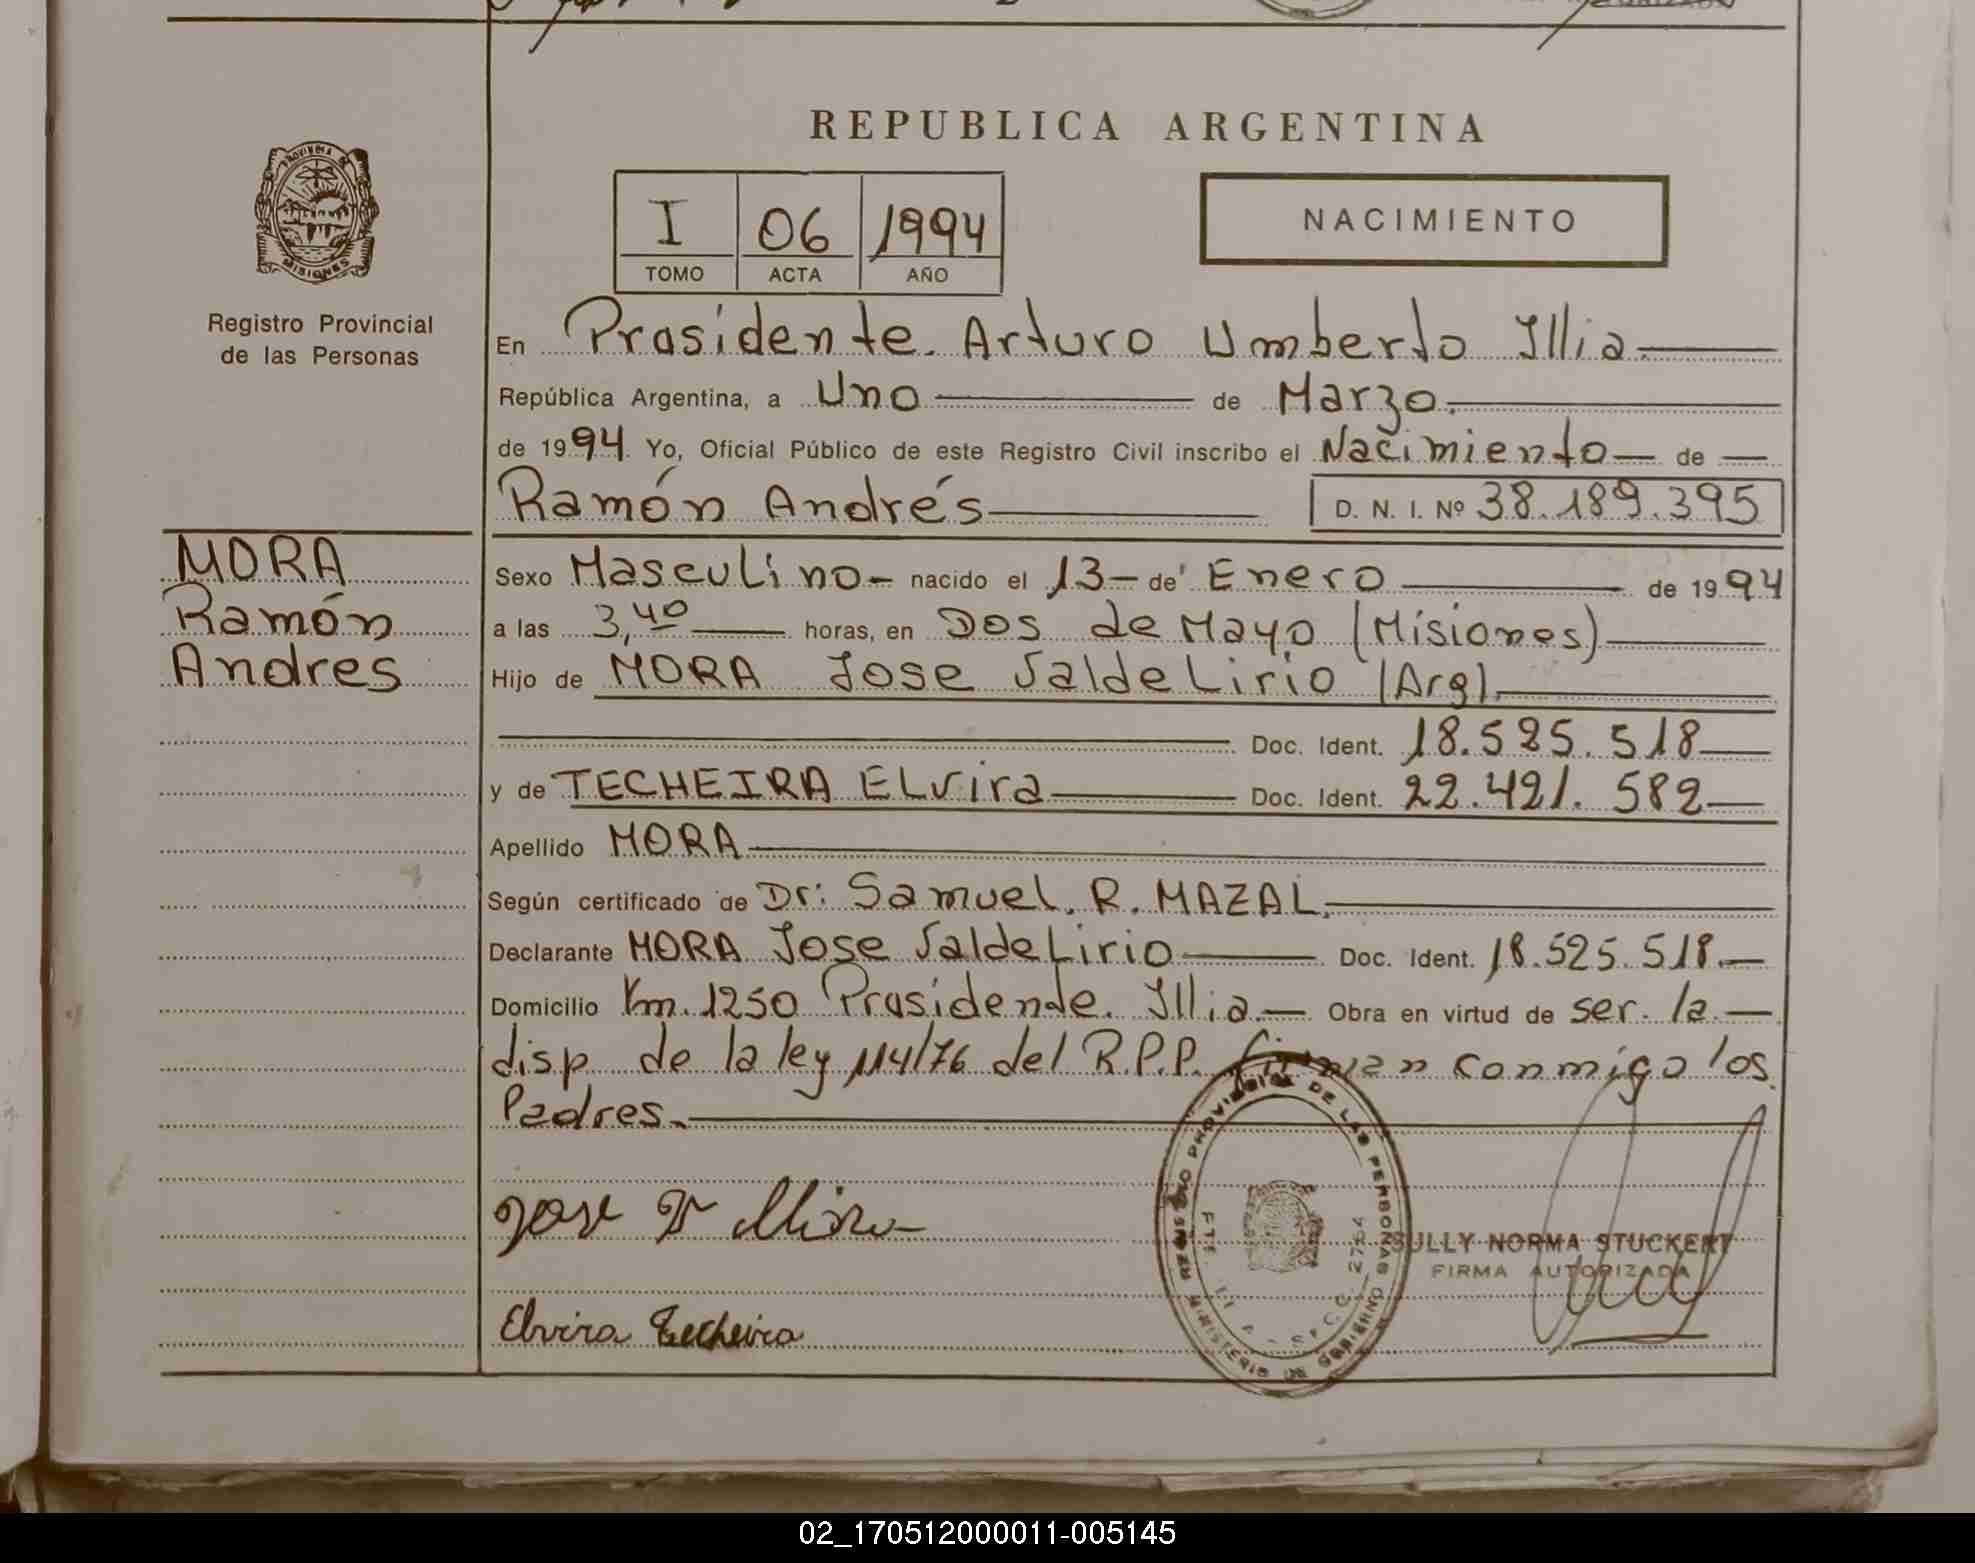 REPUBLICA ARGENTINA
I 06 1994
TOMO ACTA AÑO
NACIMIENTO
PROVINCIA DE MISIONES
Registro Provincial
de las Personas
En Prasidente. Arturo Umberto Illia.
República Argentina, a Uno de Marzo.
de 1994. Yo, Oficial Público de este Registro Civil inscribo el Nacimiento de
Ramón Andrés D. N. I. Nº 38.189.395
MORA
Ramón
Andres
Sexo Masculino nacido el 13 de Enero de 1994
a las 3,40 horas, en Dos de Mayo (Misiones)
Hijo de MORA Jose ValdeLirio (Arg).
Doc. Ident. 18.525.518
y de TECHEIRA ELvira Doc. Ident. 22.421.582
Apellido MORA
Según certificado de Dr: Samuel. R. MAZAL.
Declarante MORA Jose ValdeLirio Doc. Ident. 18.525.518.
Domicilio Km. 1250 Prasidente. Illia. Obra en virtud de ser. la.
disp. de la ley 114/76 del R.P.P. firman conmigo los.
Padres.
REGISTRO PROVINCIAL DE LAS PERSONAS
MINISTERIO DE GOBIERNO
2764
SULLY NORMA STUCKERT
FIRMA AUTORIZADA
Elvira Techeira
02_170512000011-005145